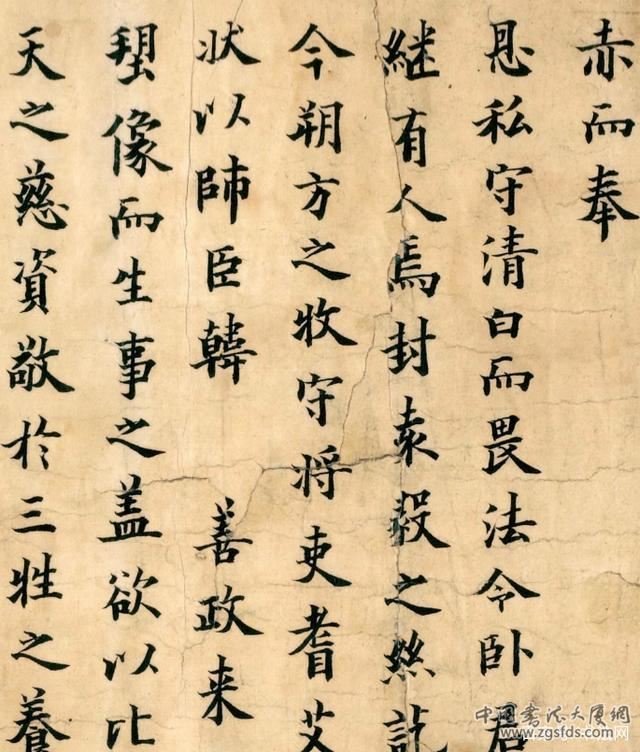 赤而奉
恩私守清白而畏法令卧
継有人焉封袁毅之絲
今朔方之牧守将吏耆艾
状以師臣韓 善政来
塑像而生事之盖欲以比
天之慈資敬於三牲之養
中国书法大厦網
www.zgsfds.com